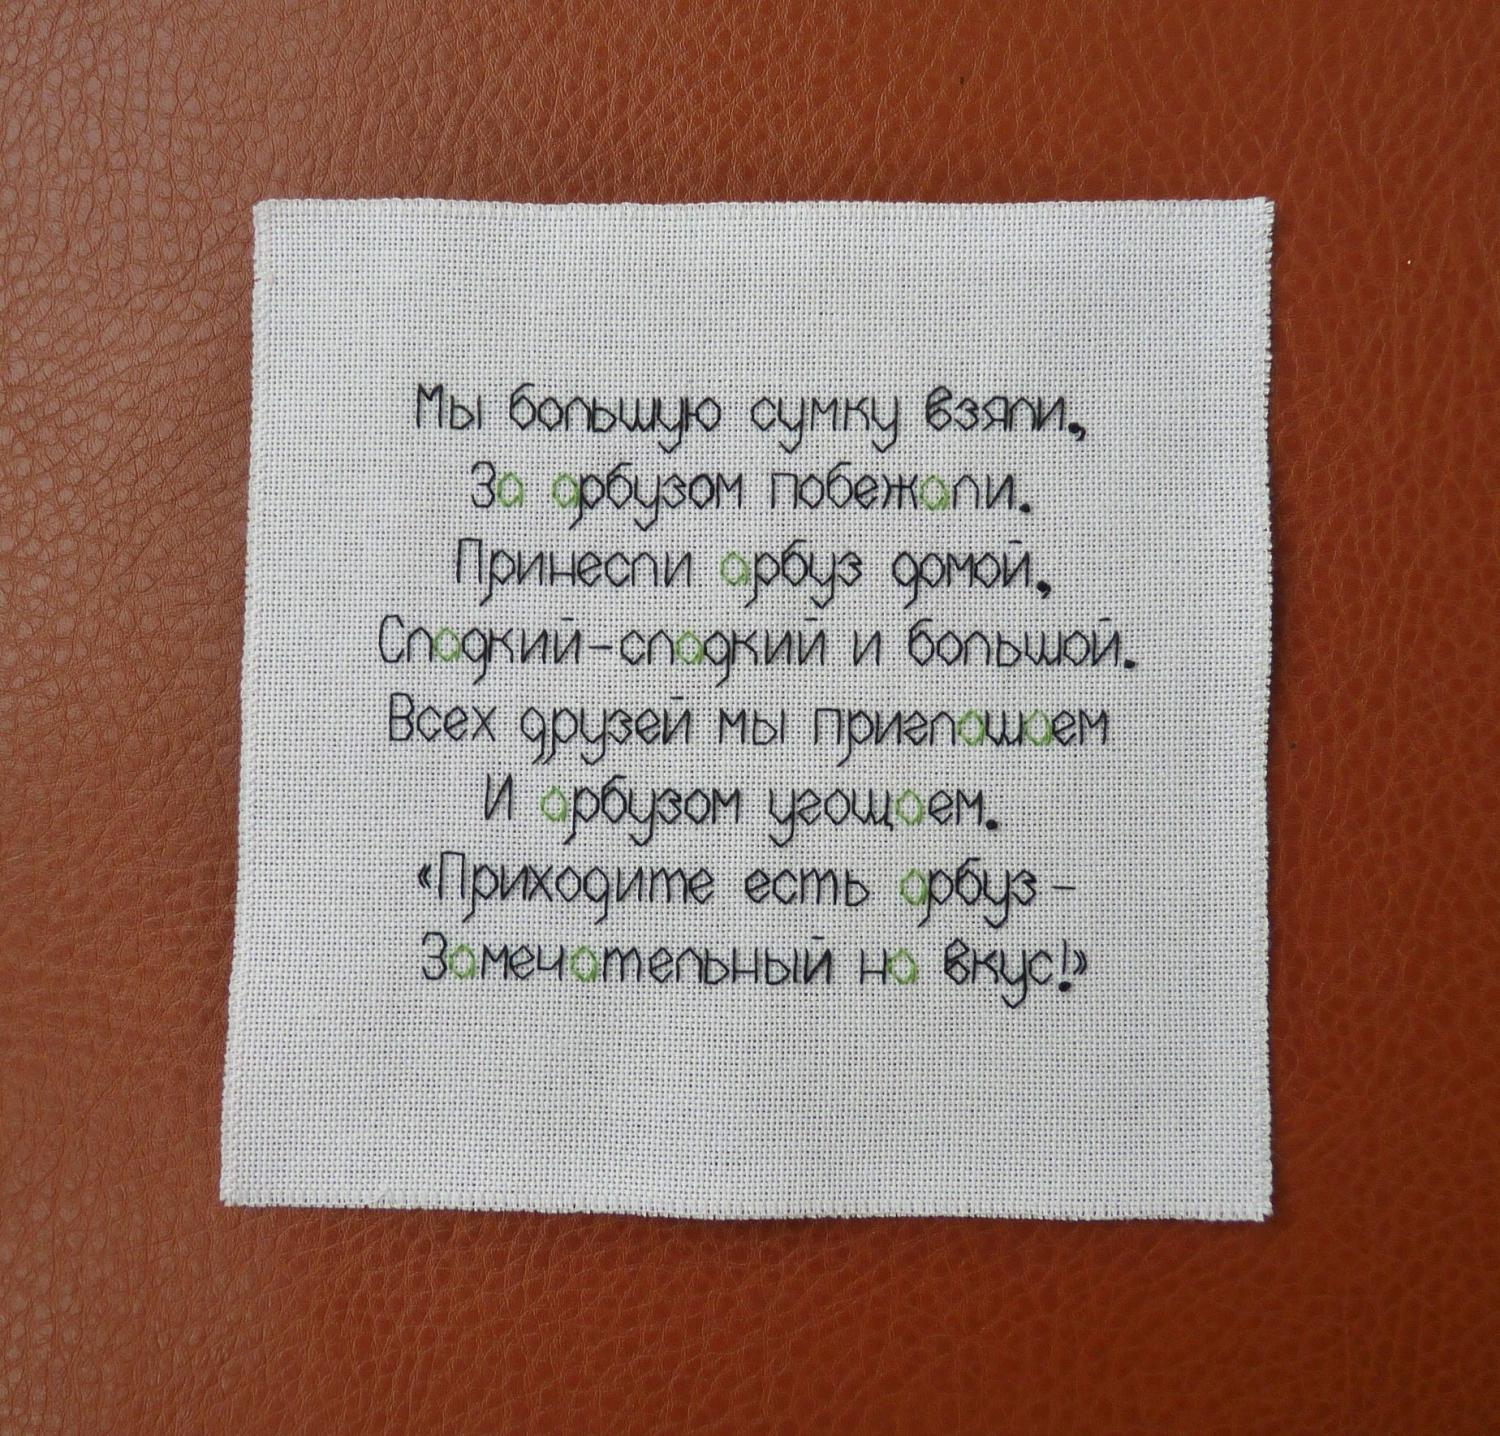 Мы большую сумку взяли,
За арбузом побежали.
Принесли арбуз домой,
Сладкий-сладкий и большой.
Всех друзей мы приглашаем
И арбузом угощаем.
«Приходите есть арбуз-
Замечательный на вкус!»